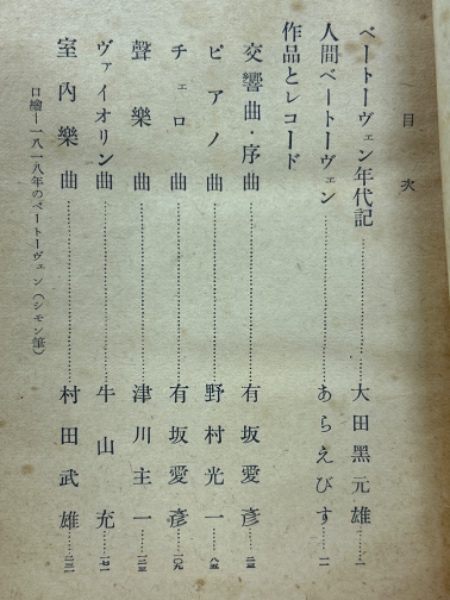 目次
ベートーヴェン年代記……大田黑元雄……一
人間ベートーヴェン……あらえびす……一一
作品とレコード
交響曲・序曲……有坂愛彦……二三
ピアノ曲……野村光一……八五
チェロ曲……有坂愛彦……一〇九
聲樂曲……津川主一……一二三
ヴァイオリン曲……牛山充……一七一
室內樂曲……村田武雄……二三一
口繪―一八一八年のベートーヴェン（シモン筆）